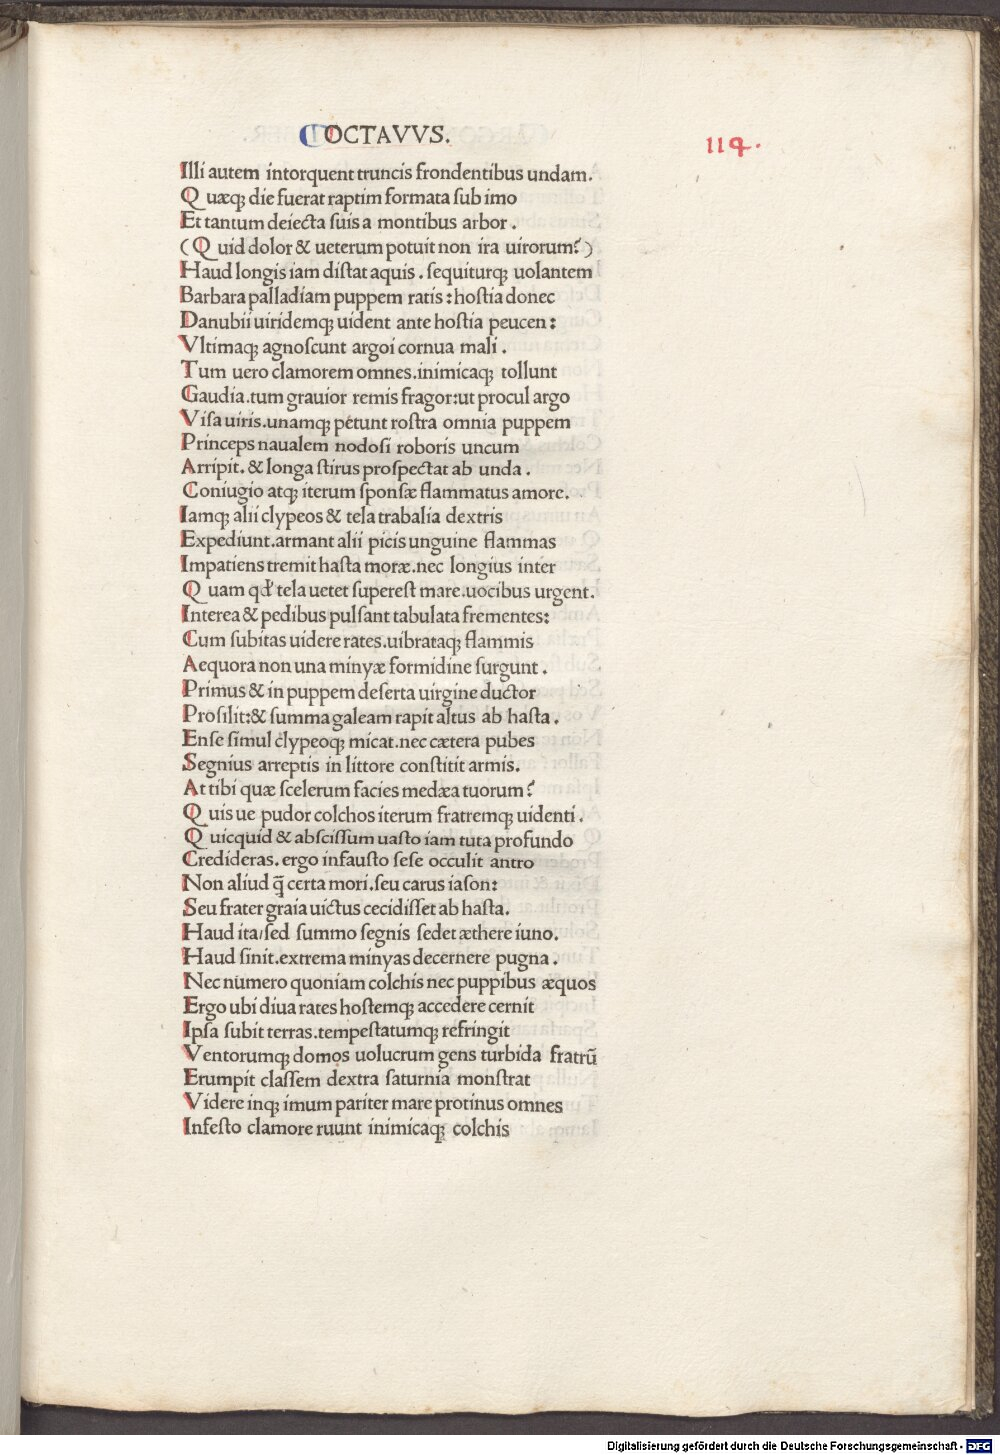 OCTAVVS.
114.
Illi autem intorquent truncis frondentibus undam.
Quæq; die fuerat raptim formata sub imo
Et tantum deiecta suis a montibus arbor.
(Quid dolor & ueterum potuit non ira uirorum?)
Haud longis iam distat aquis. sequiturq; uolantem
Barbara palladiam puppem ratis: hostia donec
Danubii uiridemq; uident ante hostia peucen:
Vltimaq; agnoscunt argoi cornua mali.
Tum uero clamorem omnes. inimicaq; tollunt
Gaudia. tum grauior remis fragor: ut procul argo
Visa uiris. unamq; petunt rostra omnia puppem
Princeps naualem nodosi roboris uncum
Arripit. & longa stirus prospectat ab unda.
Coniugio atq; iterum sponsæ flammatus amore.
Iamq; alii clypeos & tela trabalia dextris
Expediunt. armant alii picis unguine flammas
Impatiens tremit hasta moræ. nec longius inter
Quam qđ tela uetet superest mare. uocibus urgent.
Interea & pedibus pulsant tabulata frementes:
Cum subitas uidere rates. uibrataq; flammis
Aequora non una minyæ formidine surgunt.
Primus & in puppem deserta uirgine ductor
Prosilit: & summa galeam rapit altus ab hasta.
Ense simul clypeoq; micat. nec cætera pubes
Segnius arreptis in littore constitit armis.
At tibi quæ scelerum facies medæa tuorum?
Quis ue pudor colchos iterum fratremq; uidenti.
Quicquid & abscissum uasto iam tuta profundo
Credideras. ergo infausto sese occulit antro
Non aliud q̄ certa mori. seu carus iason:
Seu frater graia uictus cecidisset ab hasta.
Haud ita/sed summo segnis sedet æthere iuno.
Haud sinit. extrema minyas decernere pugna.
Nec numero quoniam colchis nec puppibus æquos
Ergo ubi diua rates hostemq; accedere cernit
Ipsa subit terras. tempestatumq; refringit
Ventorumq; domos uolucrum gens turbida fratrū
Erumpit classem dextra saturnia monstrat
Videre inq; imum pariter mare protinus omnes
Infesto clamore ruunt inimicaq; colchis
Digitalisierung gefördert durch die Deutsche Forschungsgemeinschaft - DFG